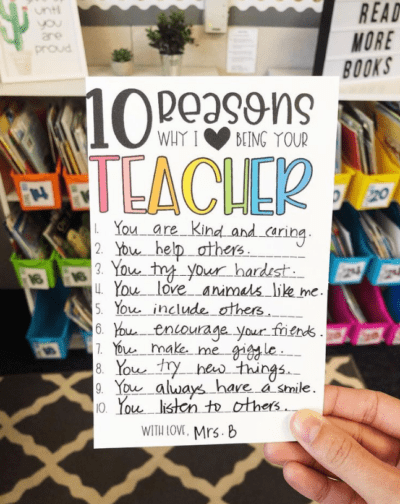 until
you
are
proud
READ
MORE
BOOKS
10 Reasons
WHY I ♥ BEING YOUR
TEACHER
1. You are kind and caring.
2. You help others.
3. You try your hardest.
4. You love animals like me.
5. You include others.
6. You encourage your friends.
7. You make me giggle.
8. You try new things.
9. You always have a smile.
10. You listen to others.
WITH LOVE, Mrs. B
20
16